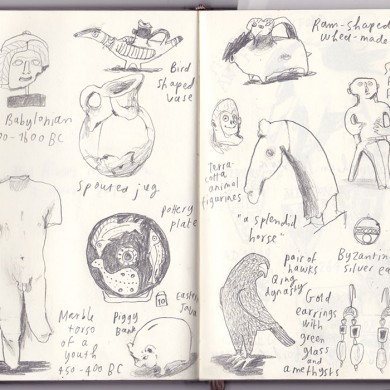 Babylonian
00-1600 BC
Bird
shaped
vase
Spouted jug
pottery
plate
Marble
torso
of a
youth
450-400 BC
Piggy
Bank
Eastern
Java
Ram-shaped
wheel-made
Terra-
cotta
animal
figurines
"a splendid
horse"
pair of
hawks
Qing
dynasty
Byzantine
silver ea
Gold
earrings
with
green
glass
and
amethysts